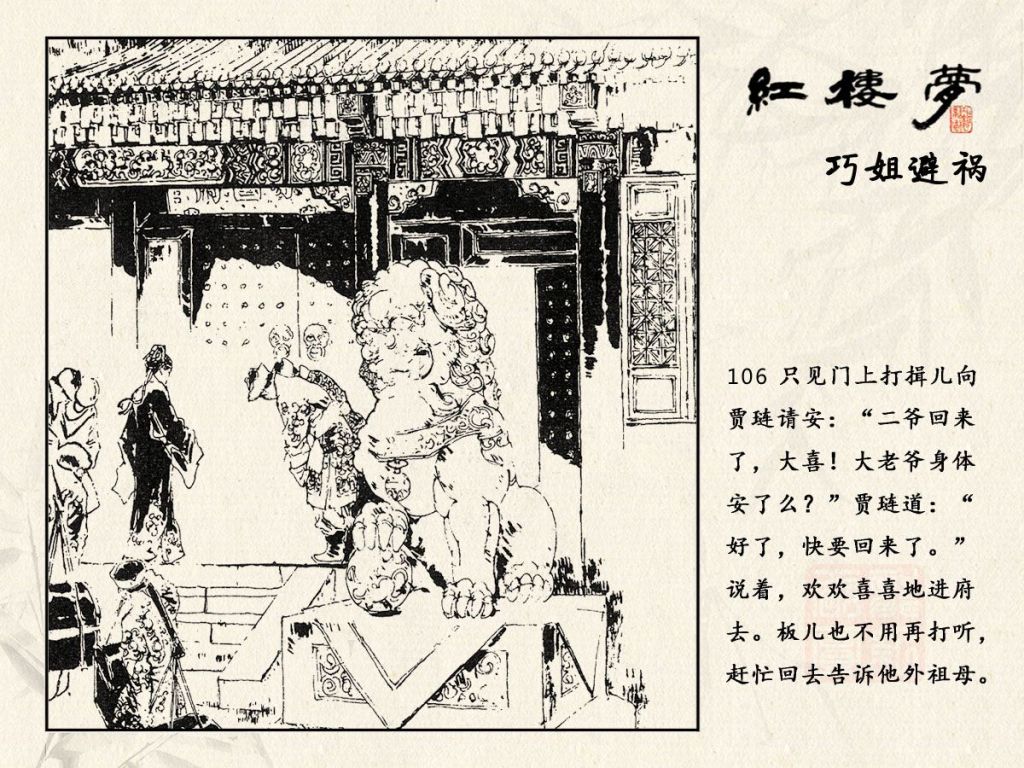 紅樓夢
巧姐避祸
106 只见门上打揖儿向
贾琏请安：“二爷回来
了，大喜！大老爷身体
安了么？”贾琏道：“
好了，快要回来了。”
说着，欢欢喜喜地进府
去。板儿也不用再打听，
赶忙回去告诉他外祖母。